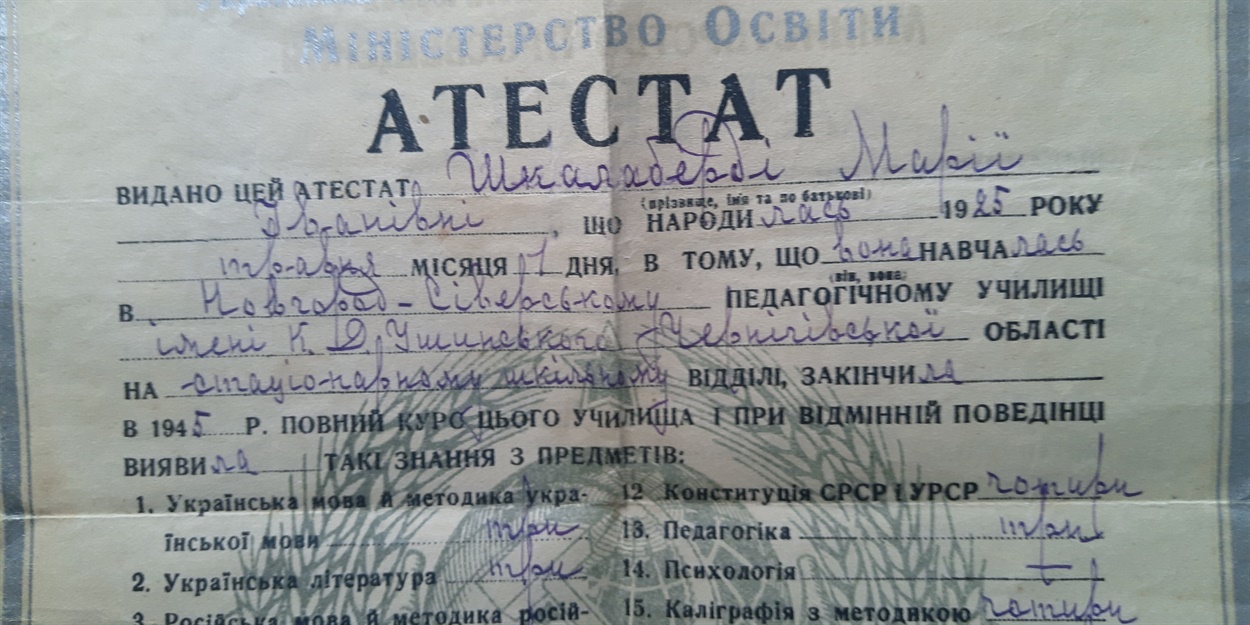 Міністерство Освіти
АТЕСТАТ
ВИДАНО ЦЕЙ АТЕСТАТ Шкалаберді Марії
(прізвище, імя та по батькові)
Іванівні, ЩО НАРОДИлась 1925 РОКУ
травня МІСЯЦЯ 1 ДНЯ, В ТОМУ, ЩО вона НАВЧАлась
(він, вона)
В Новгород-Сіверському ПЕДАГОГІЧНОМУ УЧИЛИЩІ
імені К. Д. Ушинського Чернігівської ОБЛАСТІ
НА стаціонарному шкільному ВІДДІЛІ, ЗАКІНЧИла
В 1945 Р. ПОВНИЙ КУРС ЦЬОГО УЧИЛИЩА І ПРИ ВІДМІННІЙ ПОВЕДІНЦІ
ВИЯВИла ТАКІ ЗНАННЯ З ПРЕДМЕТІВ:
1. Українська мова й методика укра-
їнської мови три
2. Українська література три
3. Російська мова й методика росій-
12 Конституція СРСР і УРСР чотири
13. Педагогіка три
14. Психологія —
15. Каліграфія з методикою чотири